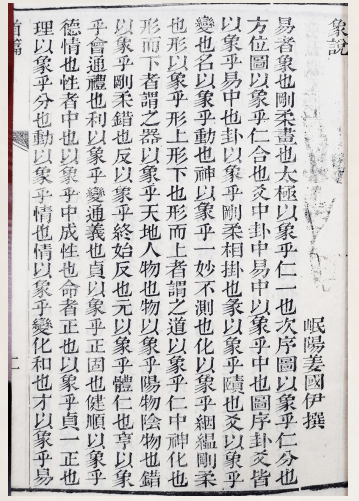 象說
岷陽姜國伊撰
易者象也剛柔畫也大極以象乎仁一也次序圖以象乎仁分也
方位圖以象乎仁合也爻中卦中易中以象乎中也圖序卦爻皆
以象乎易中也卦以象乎剛柔相掛也彖以象乎賾也爻以象乎
變也名以象乎動也神以象乎一妙不測也化以象乎絪縕剛柔
也形以象乎形上形下也形而上者謂之道以象乎仁中神化也
形而下者謂之器以象乎天地人物也物以象乎陽物陰物也錯
以象乎剛柔錯也反以象乎終始反也元以象乎體仁也亨以象
乎會通禮也利以象乎變通義也貞以象乎正固也健順以象乎
德情也性者中也以象乎中成性也命者正也以象乎貞一正也
理以象乎分也動以象乎情也情以象乎變化和也才以象乎易
首篇
一